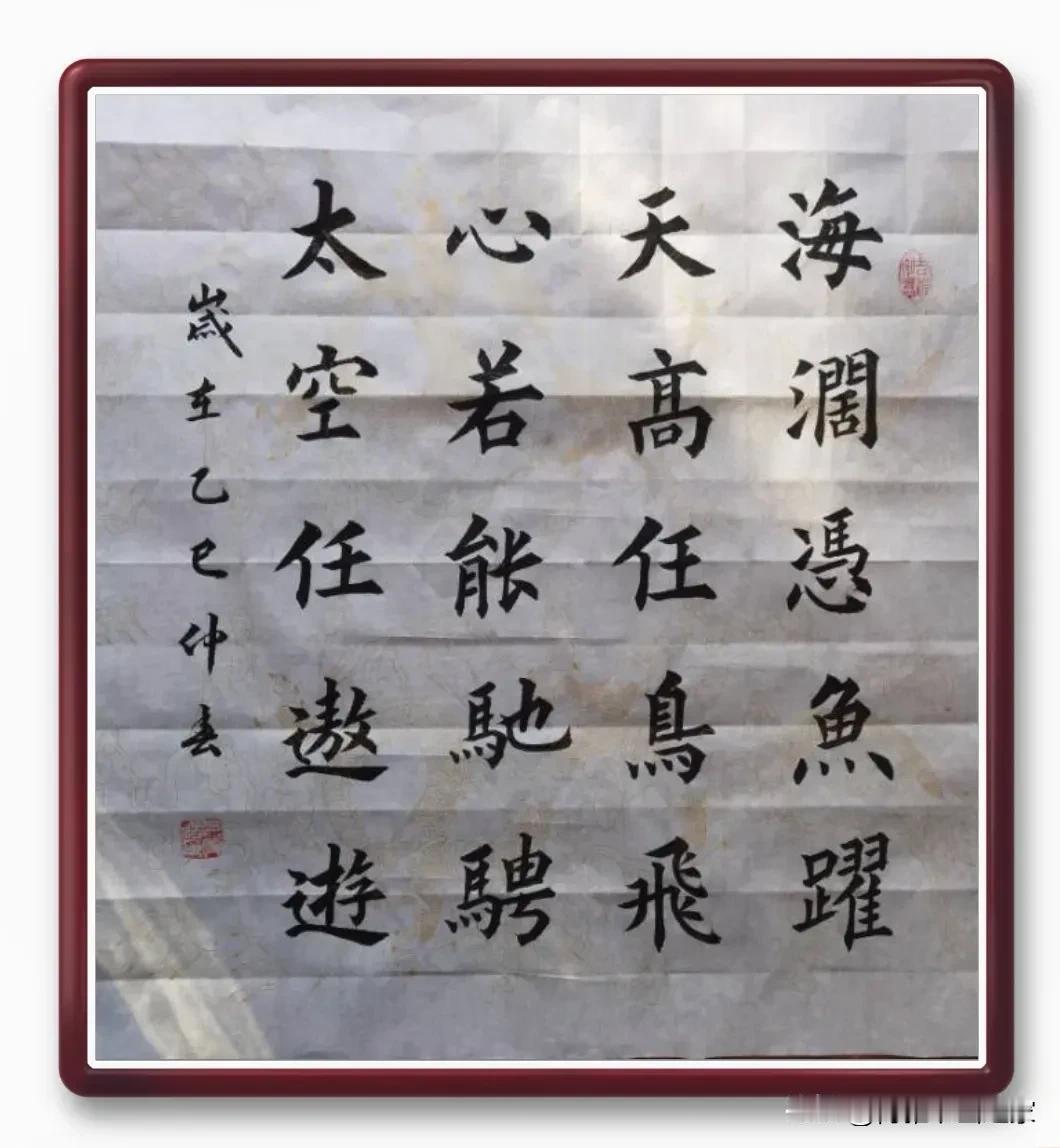 海濶憑魚躍
天髙任鳥飛
心若能馳騁
太空任遨遊
歲在乙巳仲春